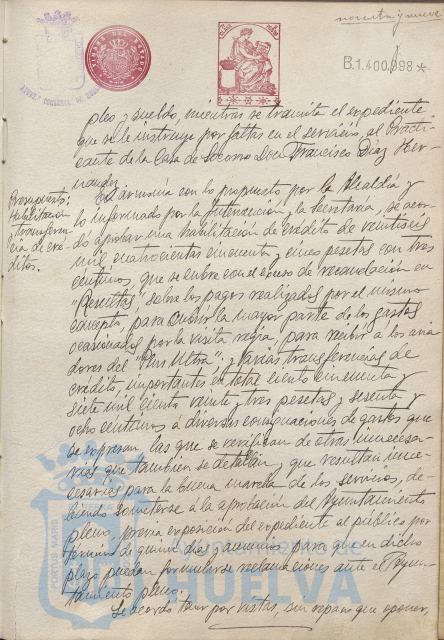 noventa y nueve
TIMBRE DEL ESTADO
B.1.400.098*
pleo y sueldo, mientras se tramita el expediente
que se le instruye por faltas en el servicio, al Practi-
cante de la Casa de Socorro Don Francisco Diaz Her-
nandez.
Presupuesto:
Habilitacion
y transferen-
cia de cré-
ditos.
En armonía con lo propuesto por la Alcaldía y
lo informado por la Intervención y la Secretaría, se acor-
dó aprobar una habilitación de crédito de veintiseis
mil cuatrocientas cincuenta y cinco pesetas con tres
centimos, que se cubre con el exceso de recaudación en
"Resultas", sobre los pagos realizados por el mismo
concepto, para cubrir la mayor parte de los gastos
ocasionados por la visita regia, para recibir á los avia
dores del "Plus Ultra", y varias transferencias de
crédito, importantes en total ciento cincuenta y
siete mil ciento veinte y tres pesetas y sesenta y
ocho centimos á diversas consignaciones de gastos que
se expresan, las que se verifican de otras innecesa-
rias que tambien se detallan, y que resultan inne-
cesarias para la buena marcha de los servicios, de-
biendo someterse á la aprobación del Ayuntamiento
pleno, previa exposición del expediente al público por
término de quince dias y anuncios para que en dicho
plazo puedan formularse reclamaciones ante el Ayun-
tamiento pleno.
Se acordó tener por vistas, sin reparo que oponer,
PORTUS MARIS
Ayuntamiento de
HUELVA